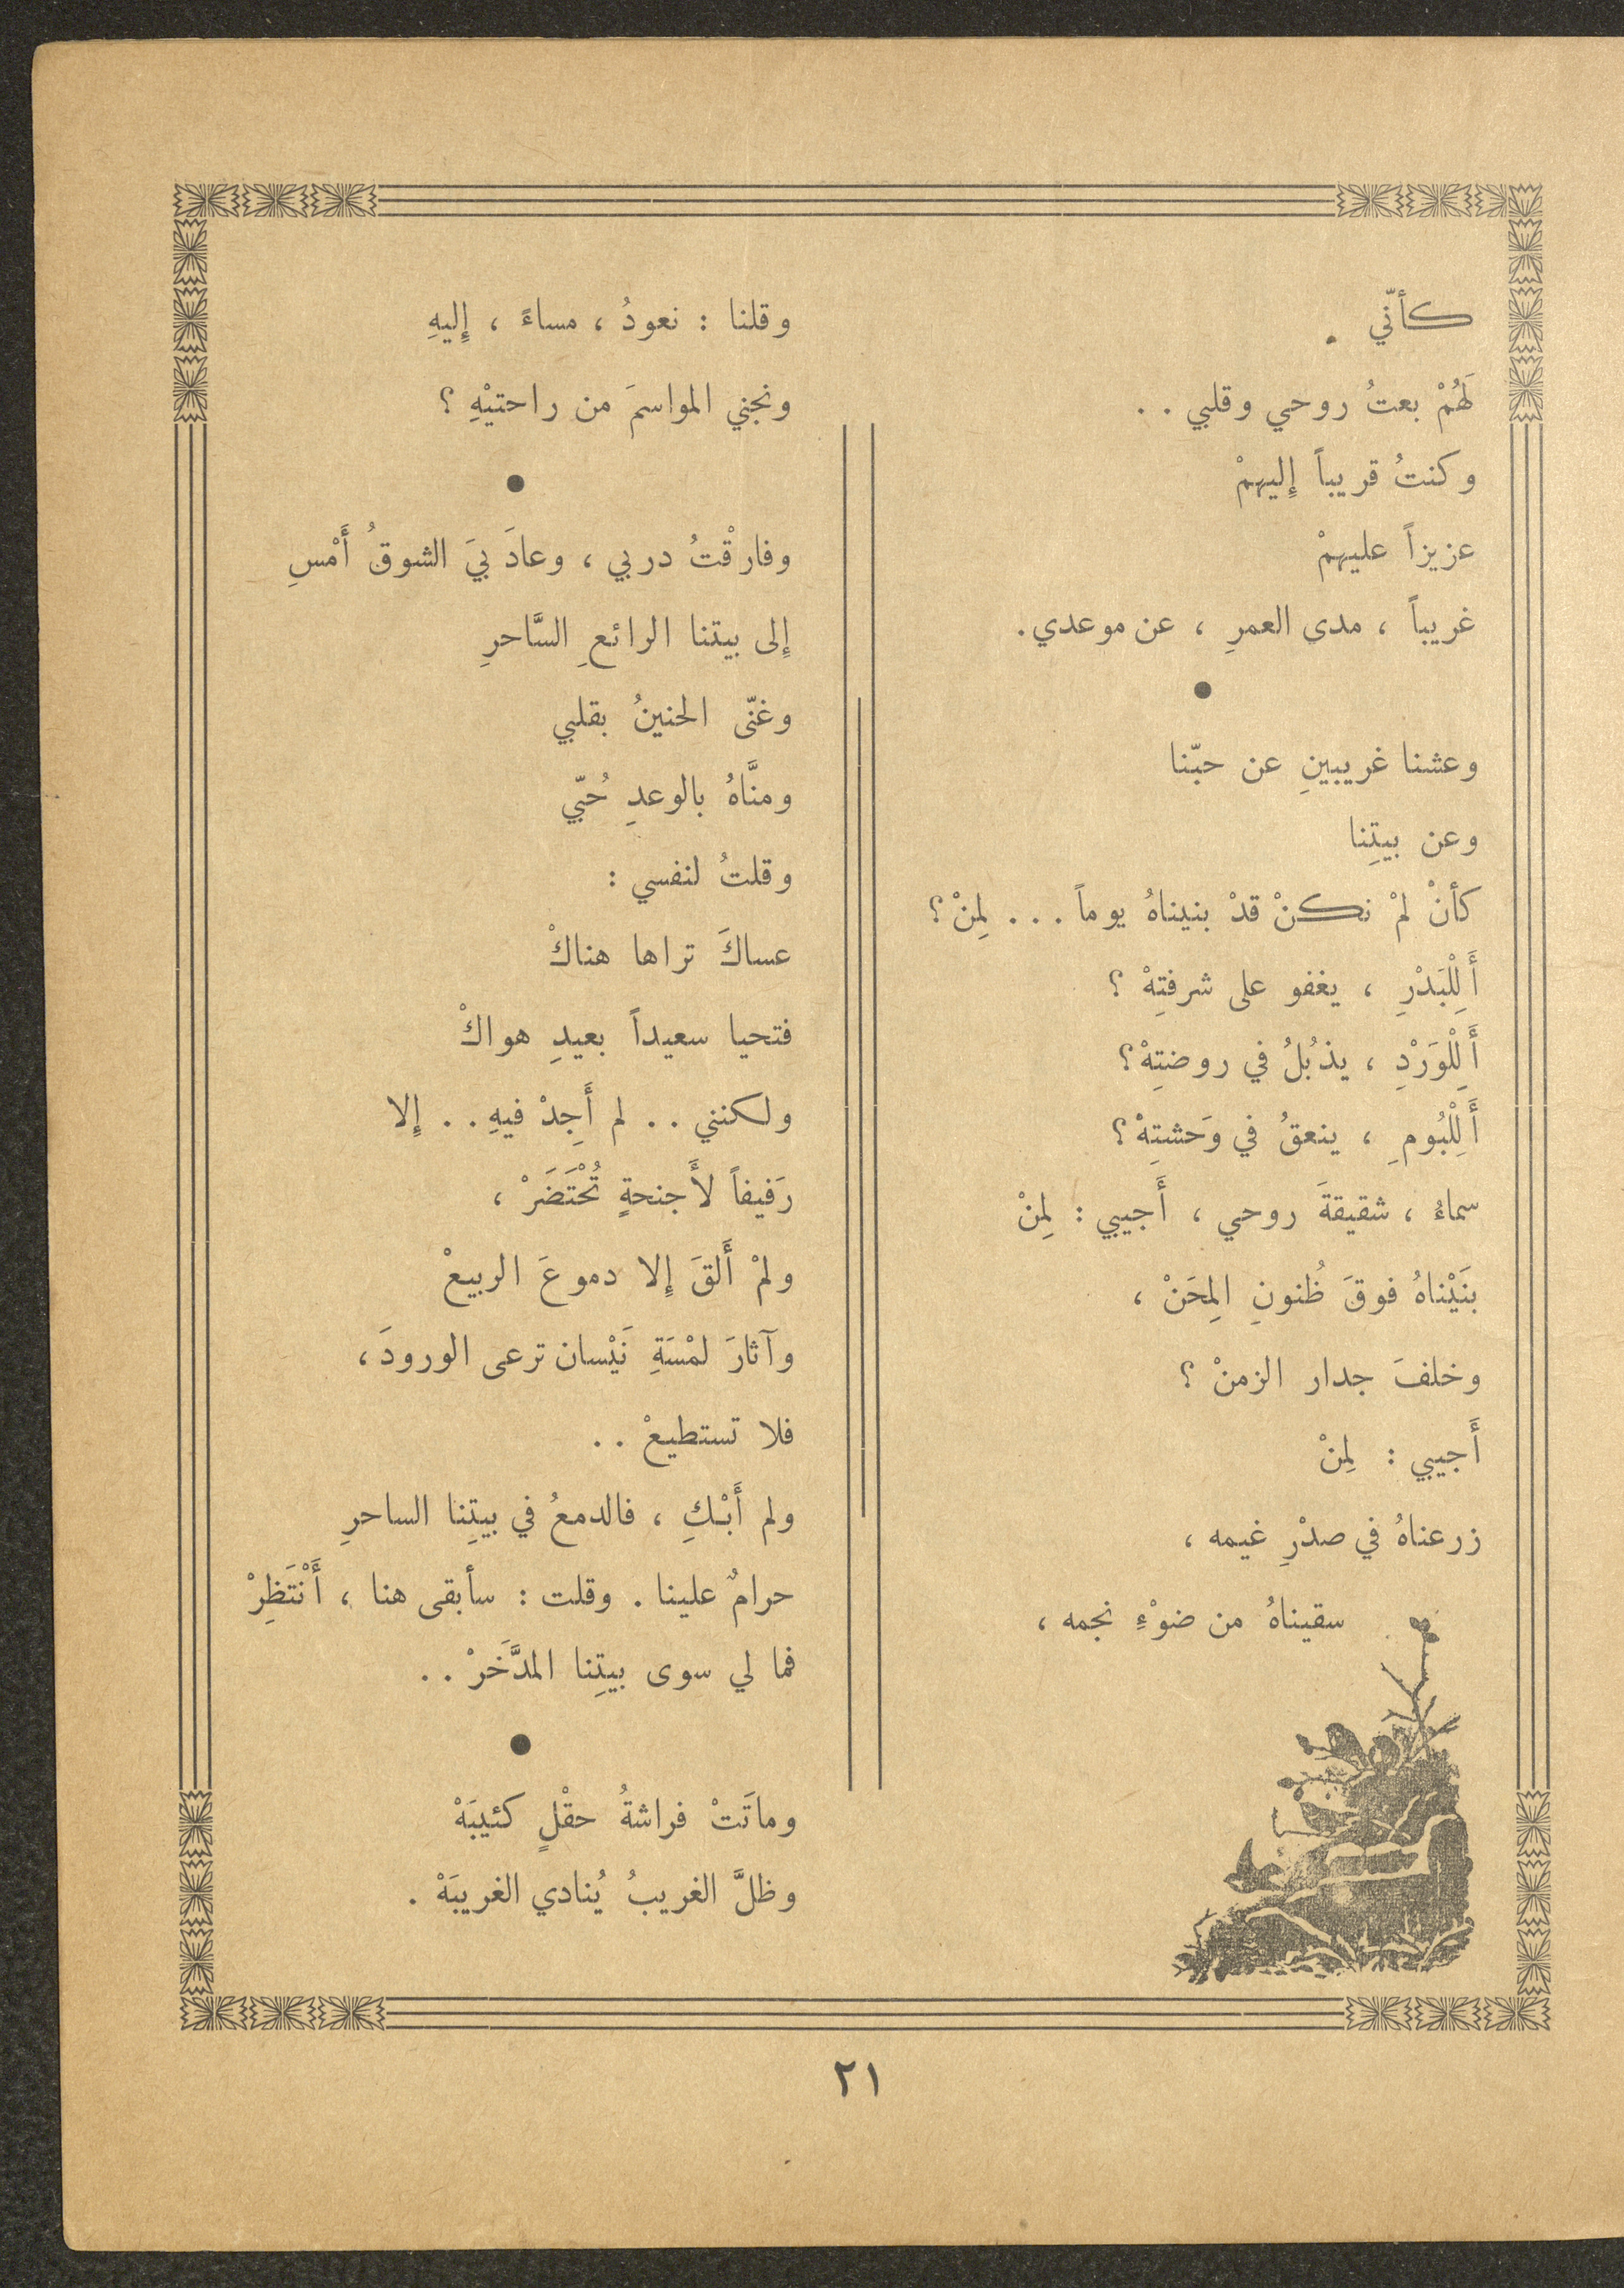 كأنّي .
لَهُمْ بعتُ روحي وقلبي . .
وكنتُ قريباً إِليهمْ
عزيزاً عليهمْ
غريباً ، مدى العمرِ ، عن موعدي .
●
وعشنا غريبينِ عن حبّنا
وعن بيتِنا
كأنْ لمْ نكنْ قدْ بنيناهُ يوماً . . . لِمنْ ؟
أَلِلْبَدْرِ ، يغفو على شرفتِهْ ؟
أَلِلْوَرْدِ ، يذبُلُ في روضتِهْ ؟
أَلِلْبُومِ ، ينعقُ في وَحشتِهْ ؟
سماءُ ، شقيقةَ روحي ، أَجيبي : لِمنْ
بنَيْناهُ فوقَ ظُنونِ المِحَنْ ،
وخلفَ جدار الزمنْ ؟
أَجيبي : لِمنْ
زرعناهُ في صدْرِ غيمه ،
سقيناهُ من ضوْءِ نجمه ،
وقلنا : نعودُ ، مساءً ، إِليهِ
ونجني المواسمَ من راحتيْهِ ؟
●
وفارقْتُ دربي ، وعادَ بيَ الشوقُ أَمْسِ
إِلى بيتنا الرائعِ السَّاحرِ
وغنّى الحنينُ بقلبي
ومنَّاهُ بالوعدِ حُبّي
وقلتُ لنفسي :
عساكَ تراها هناكْ
فتحيا سعيداً بعيدِ هواكْ
ولكنني . . لم أَجِدْ فيهِ . . إِلا
رَفيفاً لأَجنحةٍ تُحْتَضَرْ ،
ولمْ أَلقَ إِلا دموعَ الربيعْ
وآثارَ لمْسَةِ نَيْسان ترعى الورودَ ،
فلا تستطيعْ . .
ولم أَبْكِ ، فالدمعُ في بيتِنا الساحرِ
حرامٌ علينا . وقلت : سأبقى هنا ، أَنْتَظِرْ
فما لي سوى بيتِنا المدَّخَرْ . .
●
وماتَتْ فراشةُ حقْلٍ كئيبَهْ
وظلَّ الغريبُ يُنادي الغريبَهْ .
٢١